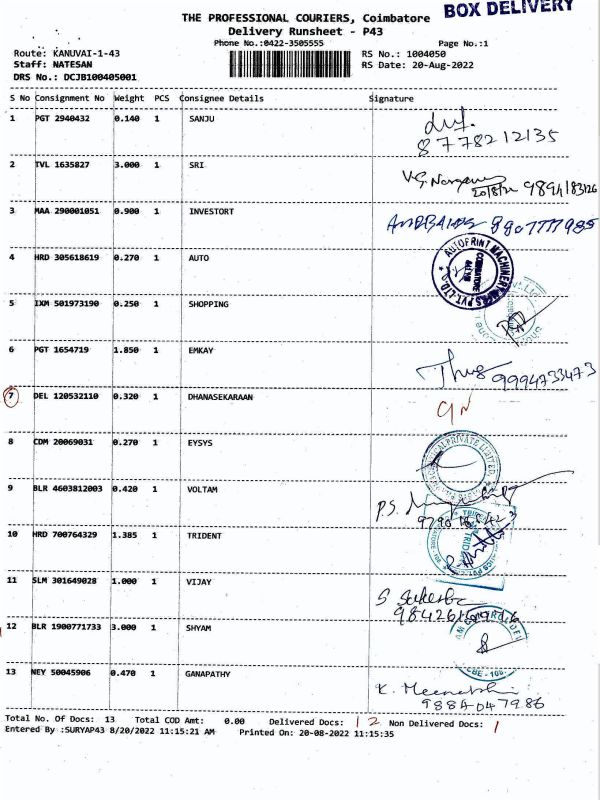 BOX DELIVERY
THE PROFESSIONAL COURIERS, Coimbatore
Delivery Runsheet - P43
Phone No.:0422-3505555 Page No.:1
Route: KANUVAI-1-43 RS No.: 1004050
Staff: NATESAN RS Date: 20-Aug-2022
DRS No.: DCJB100405001
S No Consignment No Weight PCS Consignee Details Signature
1 PGT 2940432 0.140 1 SANJU
8778212135
2 TVL 1635827 3.000 1 SRI
20/8/22
3 MAA 290001051 0.900 1 INVESTORT
8907777985
4 HRD 305618619 0.270 1 AUTO
AUTOPRINT MACHINERY PVT. LTD.
COIMBATORE
5 IXM 501973190 0.250 1 SHOPPING
6 PGT 1654719 1.850 1 EMKAY
9994733473
7 DEL 120532110 0.320 1 DHANASEKARAAN
8 CDM 20069031 0.270 1 EYSYS
PRIVATE LIMITED
9 BLR 4603812003 0.420 1 VOLTAM
P.S.
10 HRD 700764329 1.385 1 TRIDENT
TRIDENT
11 SLM 301649028 1.000 1 VIJAY
S
12 BLR 1900771733 3.000 1 SHYAM
13 NEY 50045906 0.470 1 GANAPATHY
K. Meenakshi
Total No. Of Docs: 13 Total COD Amt: 0.00 Delivered Docs: 12 Non Delivered Docs: 1
Entered By :SURYAP43 8/20/2022 11:15:21 AM Printed On: 20-08-2022 11:15:35